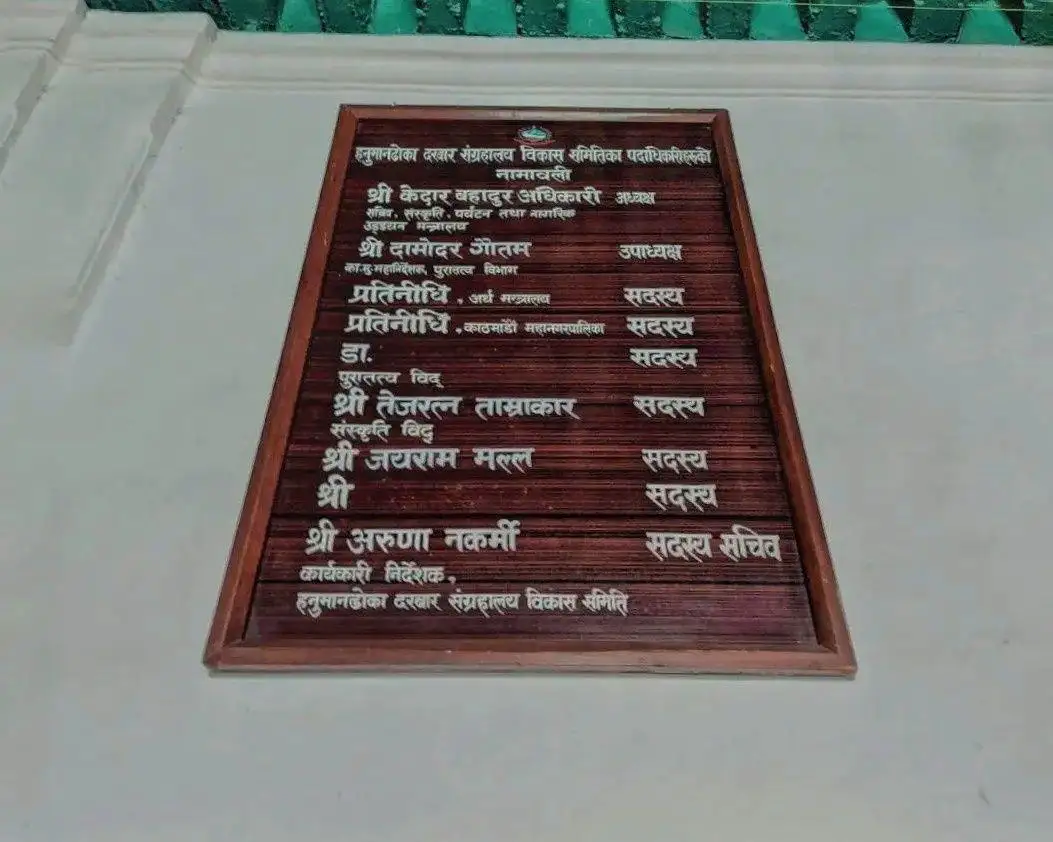 हनुमानढोका दरबार संग्रहालय विकास समितिका पदाधिकारीहरूको
नामावली
श्री केदार बहादुर अधिकारी अध्यक्ष
सचिव, संस्कृति, पर्यटन तथा नागरिक
उड्डयन मन्त्रालय
श्री दामोदर गौतम उपाध्यक्ष
का.मु.महानिर्देशक, पुरातत्व विभाग
प्रतिनीधि , अर्थ मन्त्रालय सदस्य
प्रतिनीधि , काठमाडौं महानगरपालिका सदस्य
डा. सदस्य
पुरातत्व विद्
श्री तेजरत्न ताम्राकार सदस्य
संस्कृति विद्
श्री जयराम मल्ल सदस्य
श्री सदस्य
श्री अरुणा नकर्मी सदस्य सचिव
कार्यकारी निर्देशक,
हनुमानढोका दरबार संग्रहालय विकास समिति